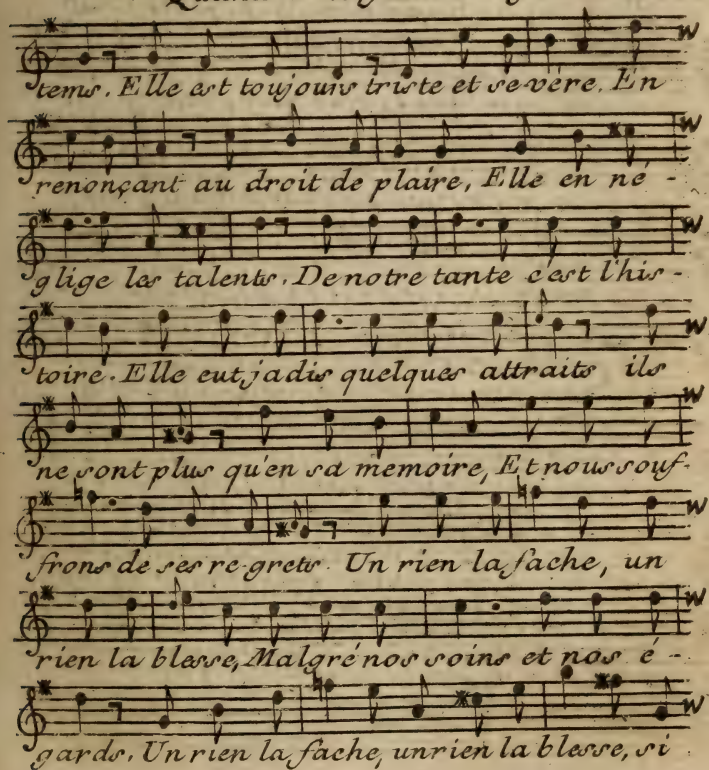 tems. Elle est toujours triste et se-vére. En
renonçant au droit de plaire, Elle en né-
glige les talents. De notre tante c'est l'his-
toire. Elle eut jadis quelques attraits ils
ne sont plus qu'en sa memoire, Et nous souf-
frons de ses re-grets. Un rien la fache, un
rien la blesse, Malgré nos soins et nos é-
gards. Un rien la fache, un rien la blesse, si